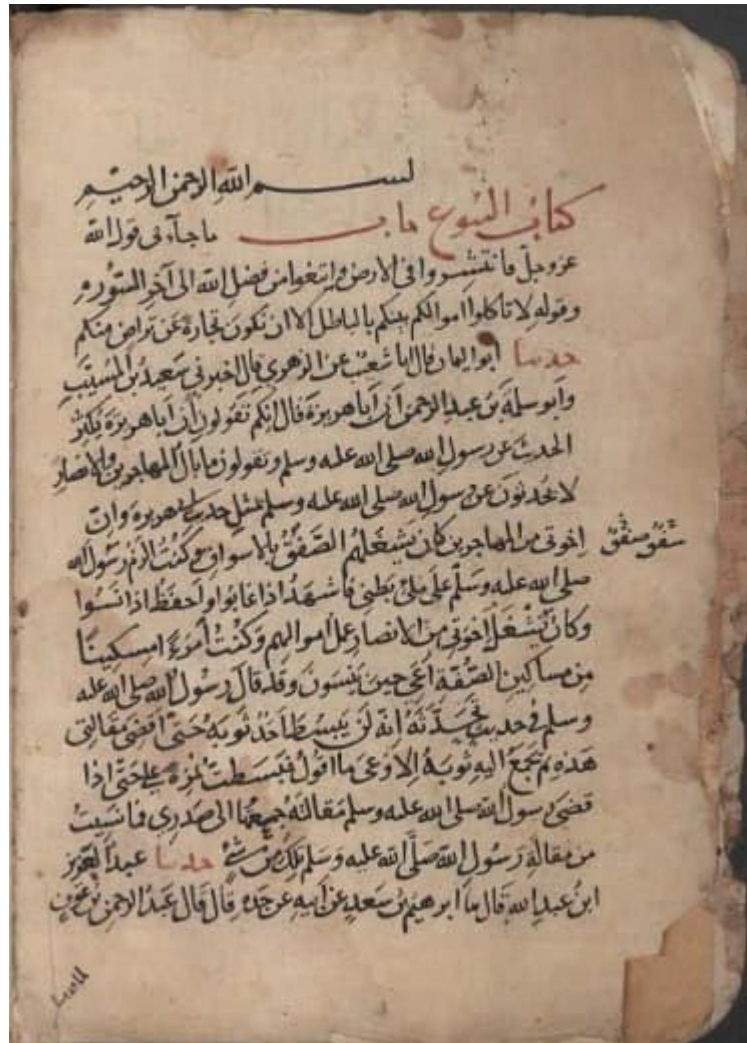 بسم الله الرحمن الرحيم
كتاب البيوع باب ما جاء في قول الله
عز وجل فانتشروا في الارض وابتغوا من فضل الله الى آخر السورة
وقوله لا تاكلوا اموالكم بينكم بالباطل الا ان تكون تجارة عن تراض منكم
حدثنا ابو اليمان قال انا شعيب عن الزهري قال اخبرني سعيد بن المسيب
وابو سلمة بن عبد الرحمن أن أبا هريرة قال انكم تقولون أن أبا هريرة يكثر
الحديث عن رسول الله صلى الله عليه وسلم وتقولون ما بال المهاجرين والانصار
لا يحدثون عن رسول الله صلى الله عليه وسلم بمثل حديث ابي هريرة وان
اخوتي من المهاجرين كان يشغلهم الصفق بالاسواق وكنت الزم رسول الله
شفق صفق
صلى الله عليه وسلم على ملئ بطني فاشهد اذا غابوا واحفظ اذا نسوا
وكان يشغل اخوتي من الانصار عمل اموالهم وكنت أمرءً امسكينًا
من مساكين الصفة أعي حين ينسون وقد قال رسول الله صلى الله عليه
وسلم في حديث يحدثه انه لن يبسط احد ثوبه حتى اقضي مقالتي
هذه ثم يجمع اليه ثوبه الا وعى ما اقول فبسطت نمرة علي حتى اذا
قضى رسول الله صلى الله عليه وسلم مقالته جمعتها الى صدري فما نسيت
من مقالة رسول الله صلى الله عليه وسلم تلك من شئ حدثنا عبد العزيز
ابن عبد الله قال نا ابرهيم بن سعد عن ابيه عن جده قال قال عبد الرحمن بن عوف